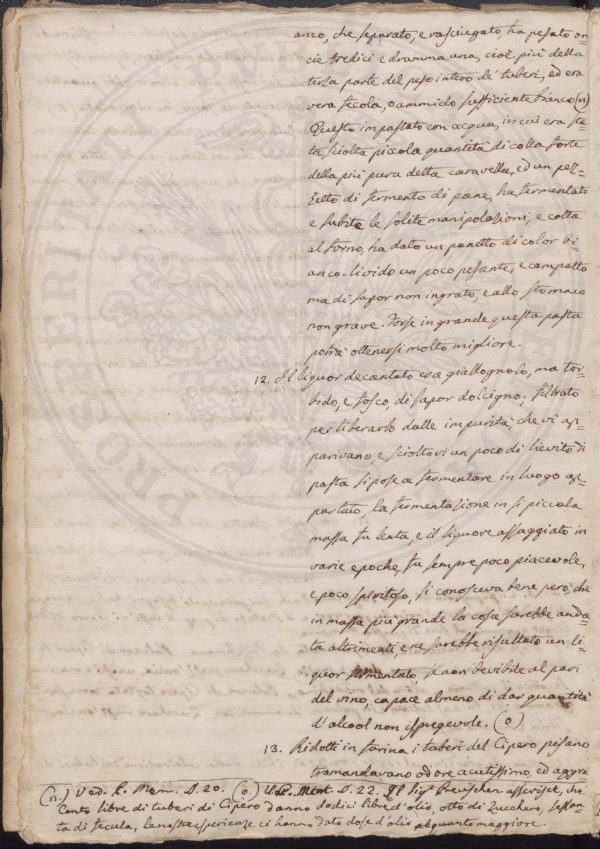 anco, che separato, e rasciugato, ha pesato on-
cie tredici e dramma una, cioè più della
terza parte del peso intero de' tuberi, ed era
vera fecola, o ammido sufficiente bianco (n)
Questo impastato con acqua, in cui era sta-
ta sciolta piccola quantità di colla forte
della più pura della caravella, ed un pez-
zetto di fermento di pane, ha fermentato
e subite le solite manipolazioni, e cotta
al forno, ha dato un panetto di color bi-
anco-livido un poco pesante, e compatto
ma di sapor non ingrato, e allo stomaco
non grave. Forse in grande questa pasta
potrà ottenersi molto migliore.
12. Il liquor decantato era giallognolo, ma tor-
bido, e fosco, di sapor dolcigno; filtrato
per liberarlo dalle impurità, che vi ap-
parivano, e scioltovi un poco di lievito di
pasta si pose a fermentare in luogo ap-
partato, la fermentazione in sì piccola
massa fu lenta, e il liquore assaggiato in
varie epoche, fu sempre poco piacevole,
e poco spiritoso, si conosceva bene però che
in massa più grande la cosa sarebbe anda-
ta altrimenti, e ne sarebbe risultato un li-
quor fermentato, se non bevibile al pari
del vino, capace almeno di dar quantità
d'alcool non ispregevole. (o)
13. Ridotti in farina i tuberi del Cipero pesano
tramandavano odore acutissimo, ed aggra-
(n) Ved. L. Mem. S. 20. (o) S. 22. Il Sigr Breuschen asserisce, che
Cento libre di tuberi di Cipero danno dodici libre d'olio, otto di Zucchero, sessan-
ta di fecula, le nostre esperienze ci hanno dato dose d'olio alquanto maggiore.